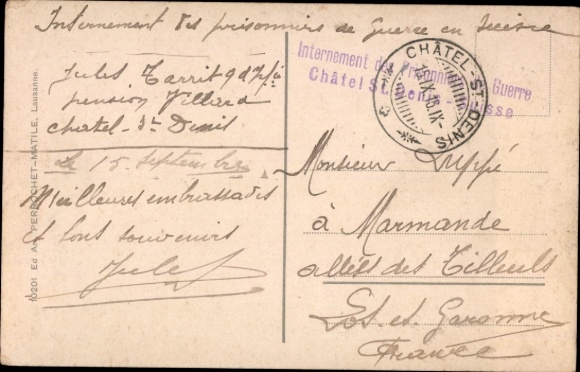 Internement des prisonniers de Guerre en Suisse
Internement des Prisonniers de Guerre
Châtel St. Denis Suisse
CHÂTEL-ST-DENIS
16.IX-
Jules Tarrit 9d
pension Villard
chatel-St Denis
le 15 septembre
Meilleures embrassades
et bons souvenirs
Jules
Monsieur Luppé
à Marmande
allées des Tilleuls
Lot. et. Garonne
France
10201 Ed A. PERROCHET-MATILE, Lausanne.